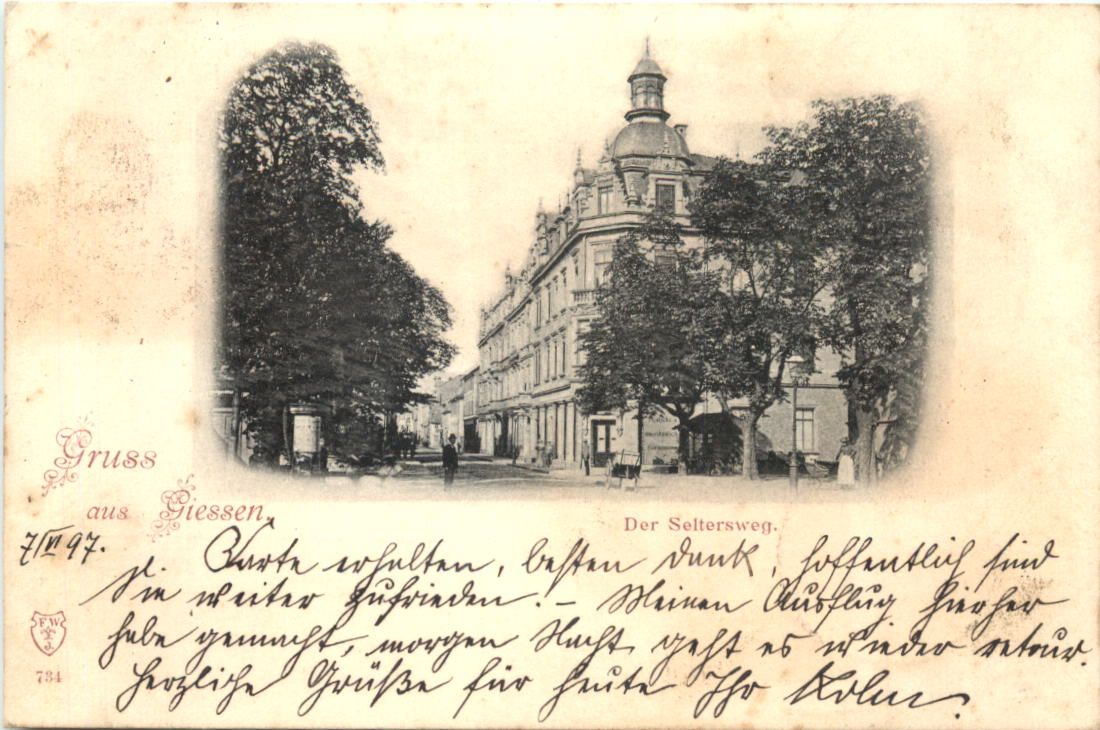 Gruss
aus Giessen.
Der Seltersweg.
7/VI 97.
d. Karte erhalten, besten Dank, hoffentlich sind
Sie weiter zufrieden! – Meinen Ausflug hierher
habe gemacht, morgen Nacht geht es wieder retour.
Herzliche Grüße für heute Ihr
F W
J.
734